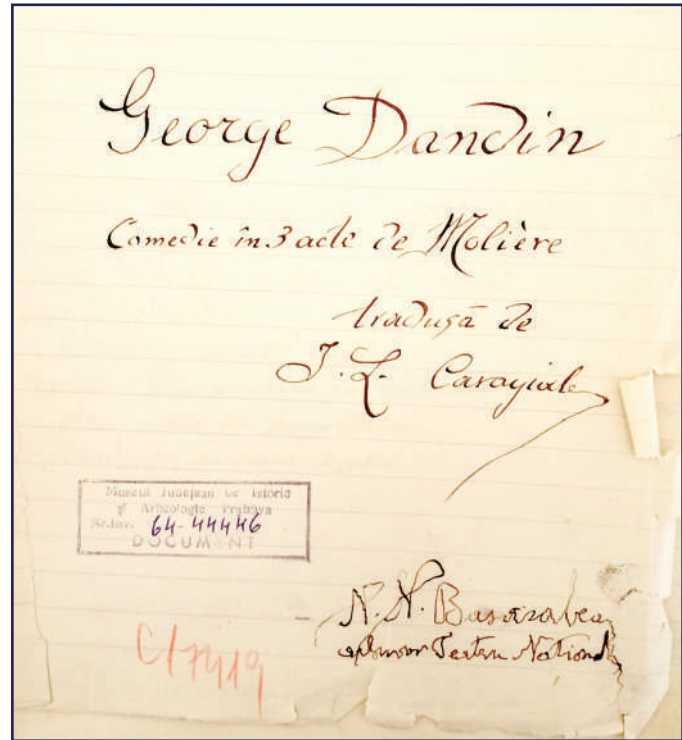 George Dandin
Comedie în 3 acte de Molière
tradusă de
I. L. Caragiale
Muzeul Județean de Istorie
și Arheologie Prahova
Nr. Inv. 64-44446
DOCUMENT
N. N. Basarabeanu
Teatru Național
C/7419